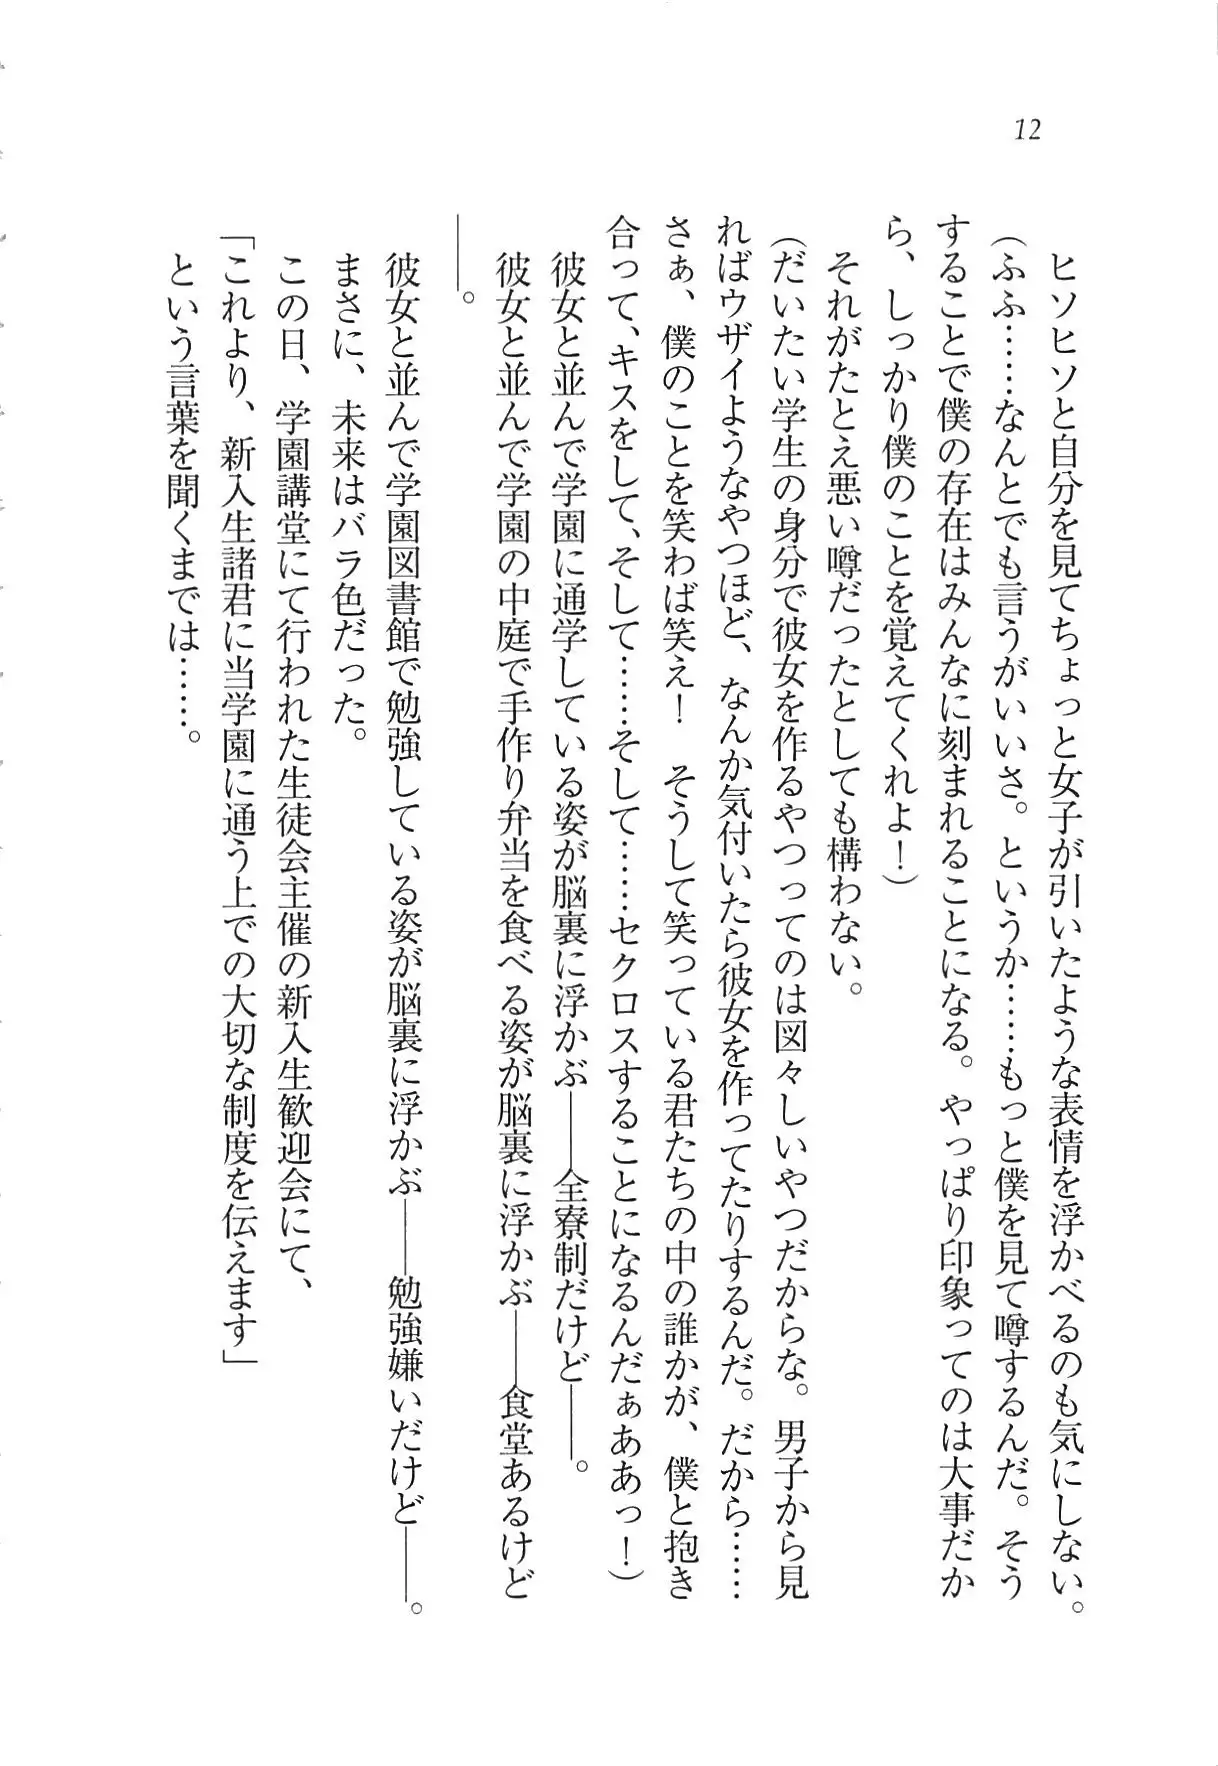 12
　ヒソヒソと自分を見てちょっと女子が引いたような表情を浮かべるのも気にしない。
（ふふ……なんとでも言うがいいさ。というか……もっと僕を見て噂するんだ。そう
することで僕の存在はみんなに刻まれることになる。やっぱり印象ってのは大事だか
ら、しっかり僕のことを覚えてくれよ！）
　それがたとえ悪い噂だったとしても構わない。
（だいたい学生の身分で彼女を作るやつってのは図々しいやつだからな。男子から見
ればウザイようなやつほど、なんか気付いたら彼女を作ってたりするんだ。だから……
さぁ、僕のことを笑わば笑え！　そうして笑っている君たちの中の誰かが、僕と抱き
合って、キスをして、そして……そして……セクロスすることになるんだぁああっ！）
　彼女と並んで学園に通学している姿が脳裏に浮かぶ――全寮制だけど――。
　彼女と並んで学園の中庭で手作り弁当を食べる姿が脳裏に浮かぶ――食堂あるけど
――。
　彼女と並んで学園図書館で勉強している姿が脳裏に浮かぶ――勉強嫌いだけど――。
　まさに、未来はバラ色だった。
　この日、学園講堂にて行われた生徒会主催の新入生歓迎会にて、
「これより、新入生諸君に当学園に通う上での大切な制度を伝えます」
　という言葉を聞くまでは……。